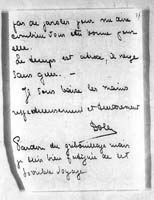 pas de paroles pour me dire
combien vous êtes bonne pour
elle.
Le temps est atroce, il neige
sans cesse. —
Je vous baise les mains
respectueusement et tendrement
Pardon du gribouillage mais
je suis bien fatiguée de cet
horrible voyage